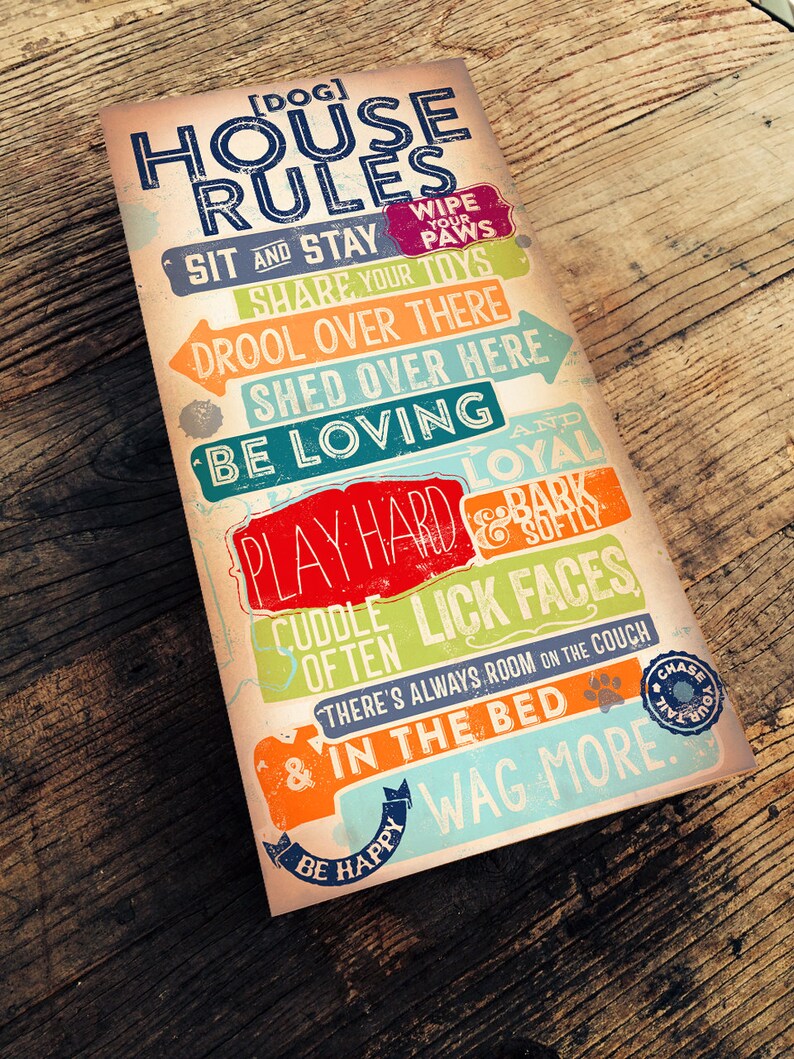 [DOG]
HOUSE
RULES
SIT AND STAY
WIPE
YOUR
PAWS
SHARE YOUR TOYS
DROOL OVER THERE
SHED OVER HERE
BE LOVING
AND
LOYAL
PLAY HARD
& BARK
SOFTLY
CUDDLE
OFTEN
LICK FACES
THERE'S ALWAYS ROOM ON THE COUCH
& IN THE BED
CHASE YOUR TAIL
WAG MORE.
BE HAPPY